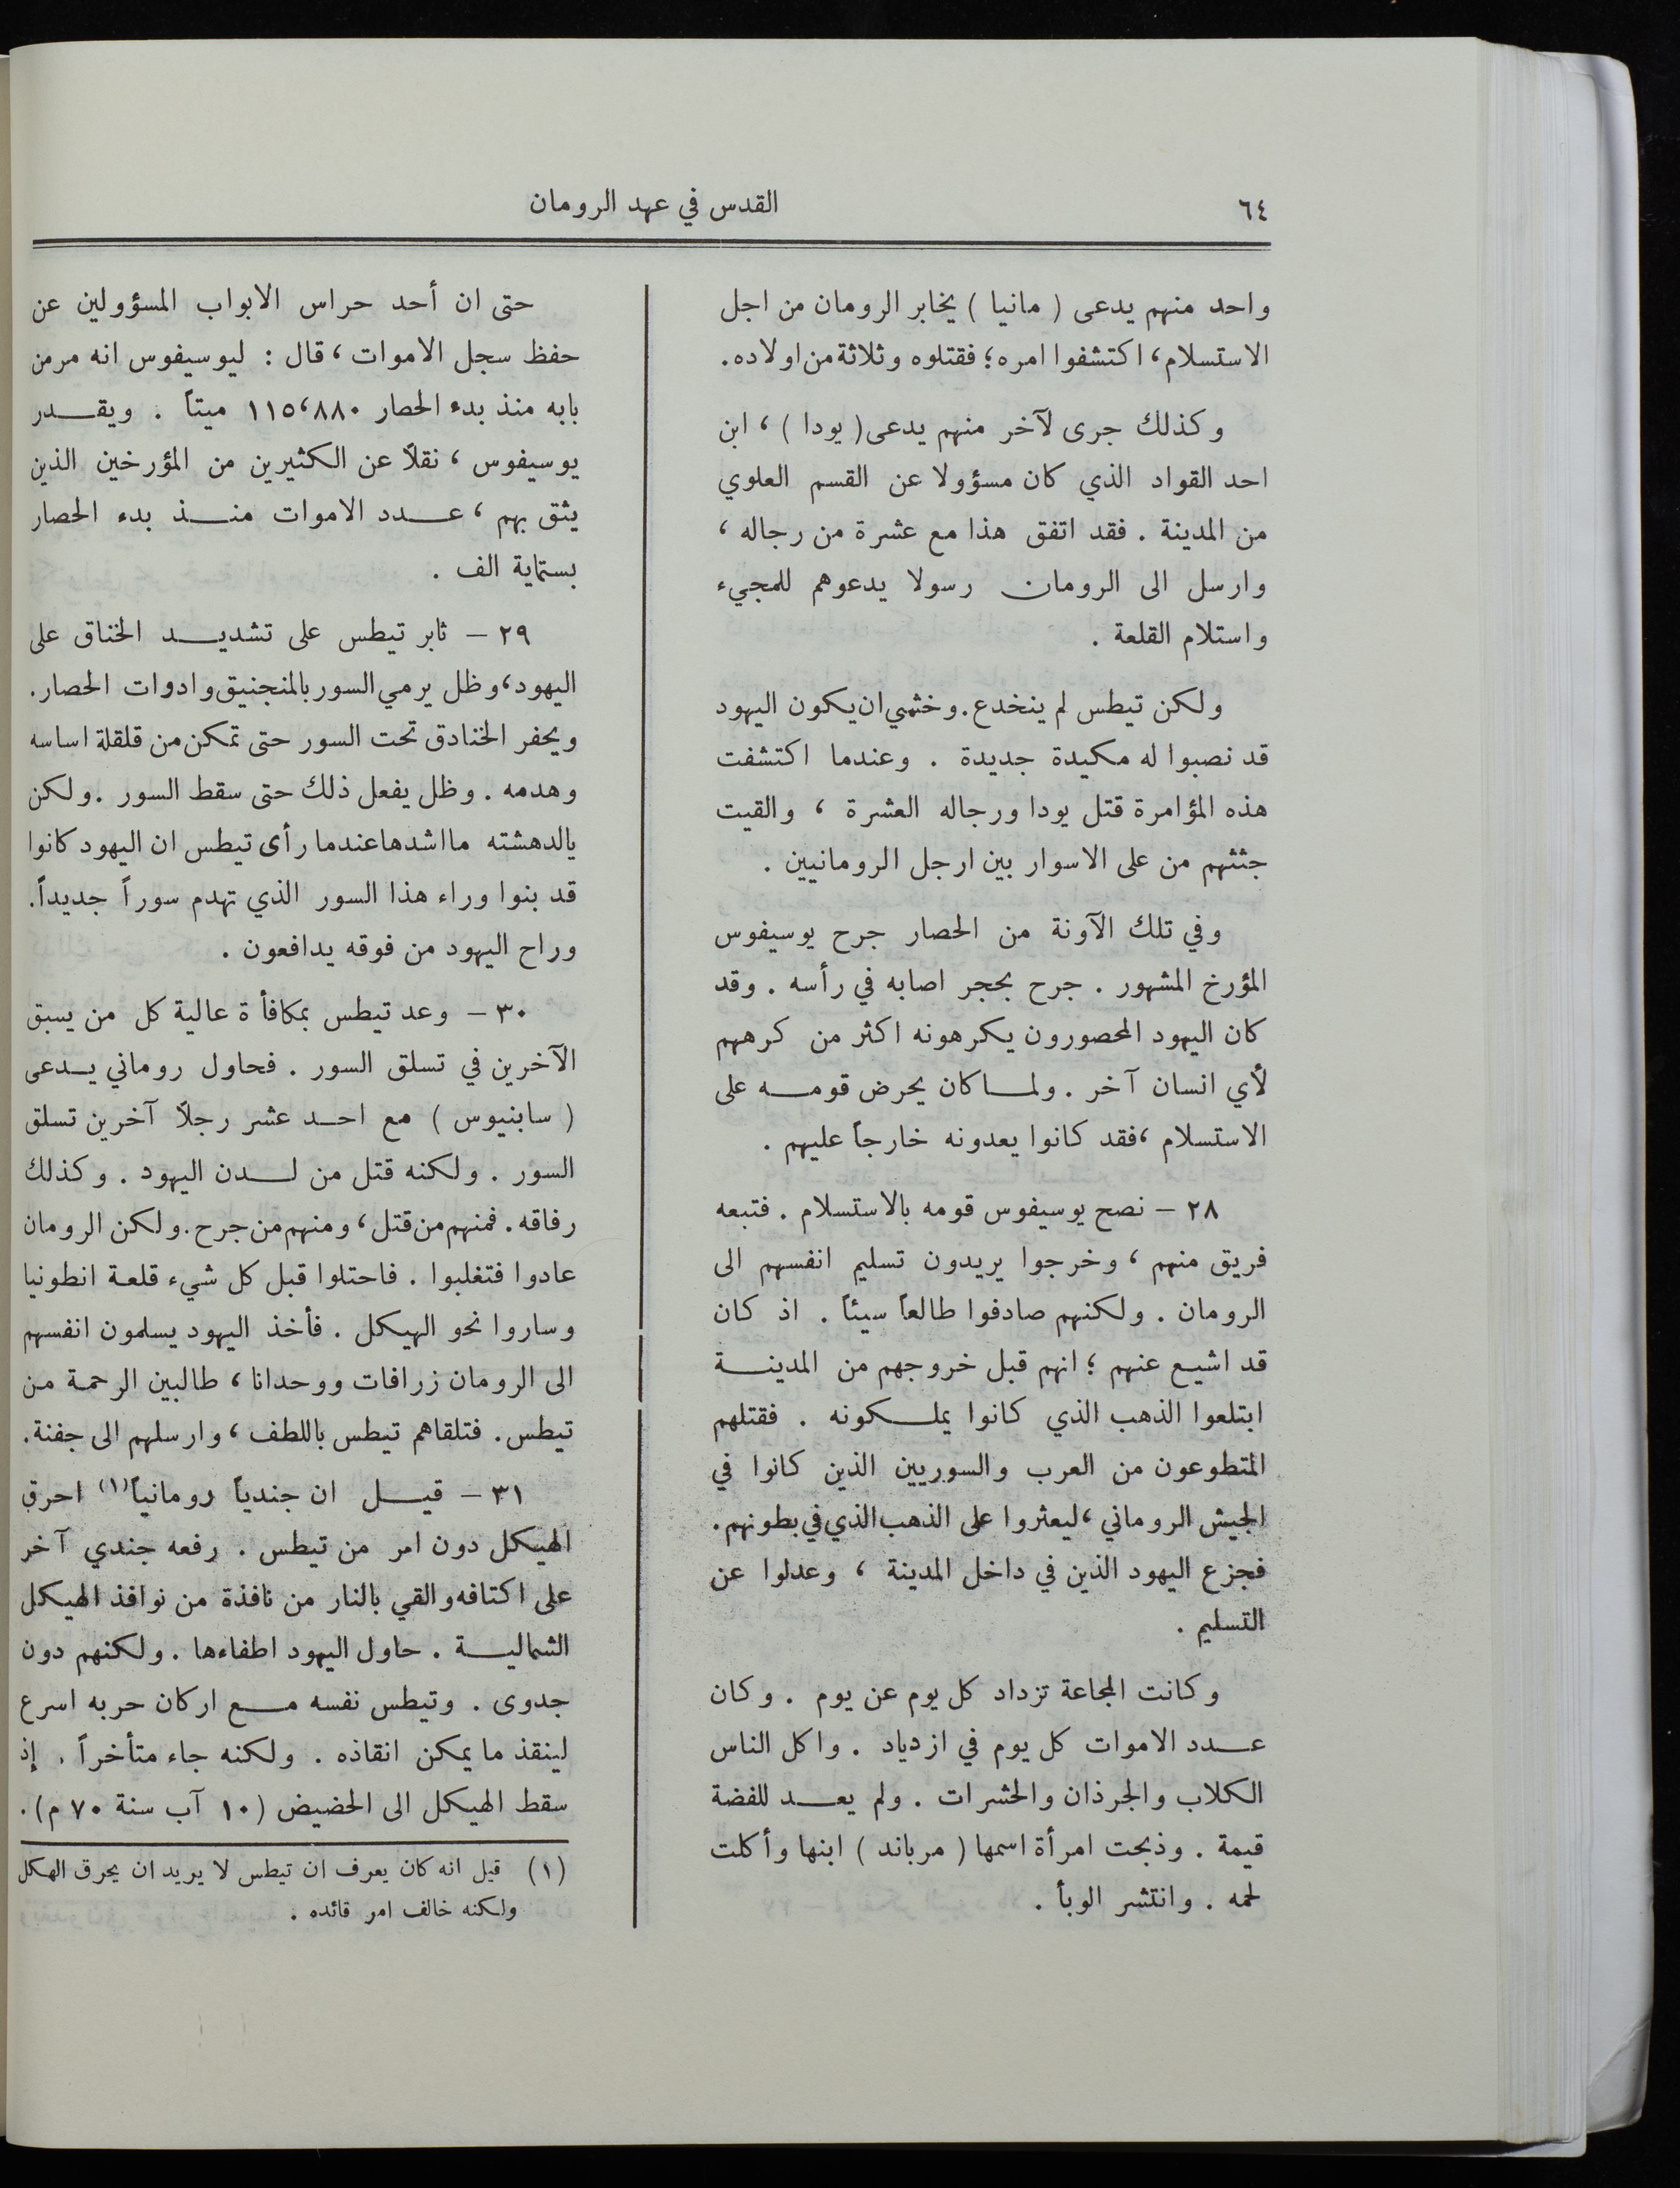 ٦٤
القدس في عهد الرومان
واحد منهم يدعى ( مانيا ) يخابر الرومان من اجل
الاستسلام، اكتشفوا امره؛ فقتلوه وثلاثة من اولاده.
وكذلك جرى لآخر منهم يدعى ( يودا ) ، ابن
احد القواد الذي كان مسؤولا عن القسم العلوي
من المدينة . فقد اتفق هذا مع عشرة من رجاله ،
وارسل الى الرومان رسولا يدعوهم للمجيء
واستلام القلعة .
ولكن تيطس لم ينخدع. وخشي ان يكون اليهود
قد نصبوا له مكيدة جديدة . وعندما اكتشفت
هذه المؤامرة قتل يودا ورجاله العشرة ، والقيت
جثثهم من على الاسوار بين ارجل الرومانيين .
وفي تلك الآونة من الحصار جرح يوسيفوس
المؤرخ المشهور . جرح بحجر اصابه في رأسه . وقد
كان اليهود المحصورون يكرهونه اكثر من كرههم
لأي انسان آخر . ولما كان يحرض قومه على
الاستسلام ، فقد كانوا يعدونه خارجاً عليهم .
٢٨ – نصح يوسيفوس قومه بالاستسلام . فتبعه
فريق منهم ، وخرجوا يريدون تسليم انفسهم الى
الرومان . ولكنهم صادفوا طالعاً سيئاً . اذ كان
قد اشيع عنهم ؛ انهم قبل خروجهم من المدينة
ابتلعوا الذهب الذي كانوا يملكونه . فقتلهم
المتطوعون من العرب والسوريين الذين كانوا في
الجيش الروماني ، ليعثروا على الذهب الذي في بطونهم.
فجزع اليهود الذين في داخل المدينة ، وعدلوا عن
التسليم .
وكانت المجاعة تزداد كل يوم عن يوم . وكان
عدد الاموات كل يوم في ازدياد . واكل الناس
الكلاب والجرذان والحشرات . ولم يعد للفضة
قيمة . وذبحت امرأة اسمها ( مرباند ) ابنها وأكلت
لحمه . وانتشر الوبأ .
حتى ان أحد حراس الابواب المسؤولين عن
حفظ سجل الاموات ، قال : ليوسيفوس انه مر من
بابه منذ بدء الحصار ١١٥،٨٨٠ ميتاً . ويقدر
يوسيفوس ، نقلاً عن الكثيرين من المؤرخين الذين
يثق بهم ، عدد الاموات منذ بدء الحصار
بستماية الف .
٢٩ – ثابر تيطس على تشديد الخناق على
اليهود، وظل يرمي السور بالمنجنيق وادوات الحصار.
ويحفر الخنادق تحت السور حتى تمكن من قلقلة اساسه
وهدمه . وظل يفعل ذلك حتى سقط السور . ولكن
يالدهشته ما اشدها عندما رأى تيطس ان اليهود كانوا
قد بنوا وراء هذا السور الذي تهدم سوراً جديداً.
وراح اليهود من فوقه يدافعون .
٣٠ – وعد تيطس بمكافأة عالية كل من يسبق
الآخرين في تسلق السور . فحاول روماني يدعى
( سابنيوس ) مع احد عشر رجلاً آخرين تسلق
السور . ولكنه قتل من لدن اليهود . وكذلك
رفاقه . فمنهم من قتل ، ومنهم من جرح . ولكن الرومان
عادوا فتغلبوا . فاحتلوا قبل كل شيء قلعة انطونيا
وساروا نحو الهيكل . فأخذ اليهود يسلمون انفسهم
الى الرومان زرافات ووحدانا ، طالبين الرحمة من
تيطس . فتلقاهم تيطس باللطف ، وارسلهم الى جفنة.
٣١ – قيل ان جندياً رومانياً(١) احرق
الهيكل دون امر من تيطس . رفعه جندي آخر
على اكتافه والقي بالنار من نافذة من نوافذ الهيكل
الشمالية . حاول اليهود اطفاءها . ولكنهم دون
جدوى . وتيطس نفسه مع اركان حربه اسرع
لينقذ ما يمكن انقاذه . ولكنه جاء متأخراً . إذ
سقط الهيكل الى الحضيض (١٠ آب سنة ٧٠ م).
(١) قيل انه كان يعرف ان تيطس لا يريد ان يحرق الهكل
ولكنه خالف امر قائده .